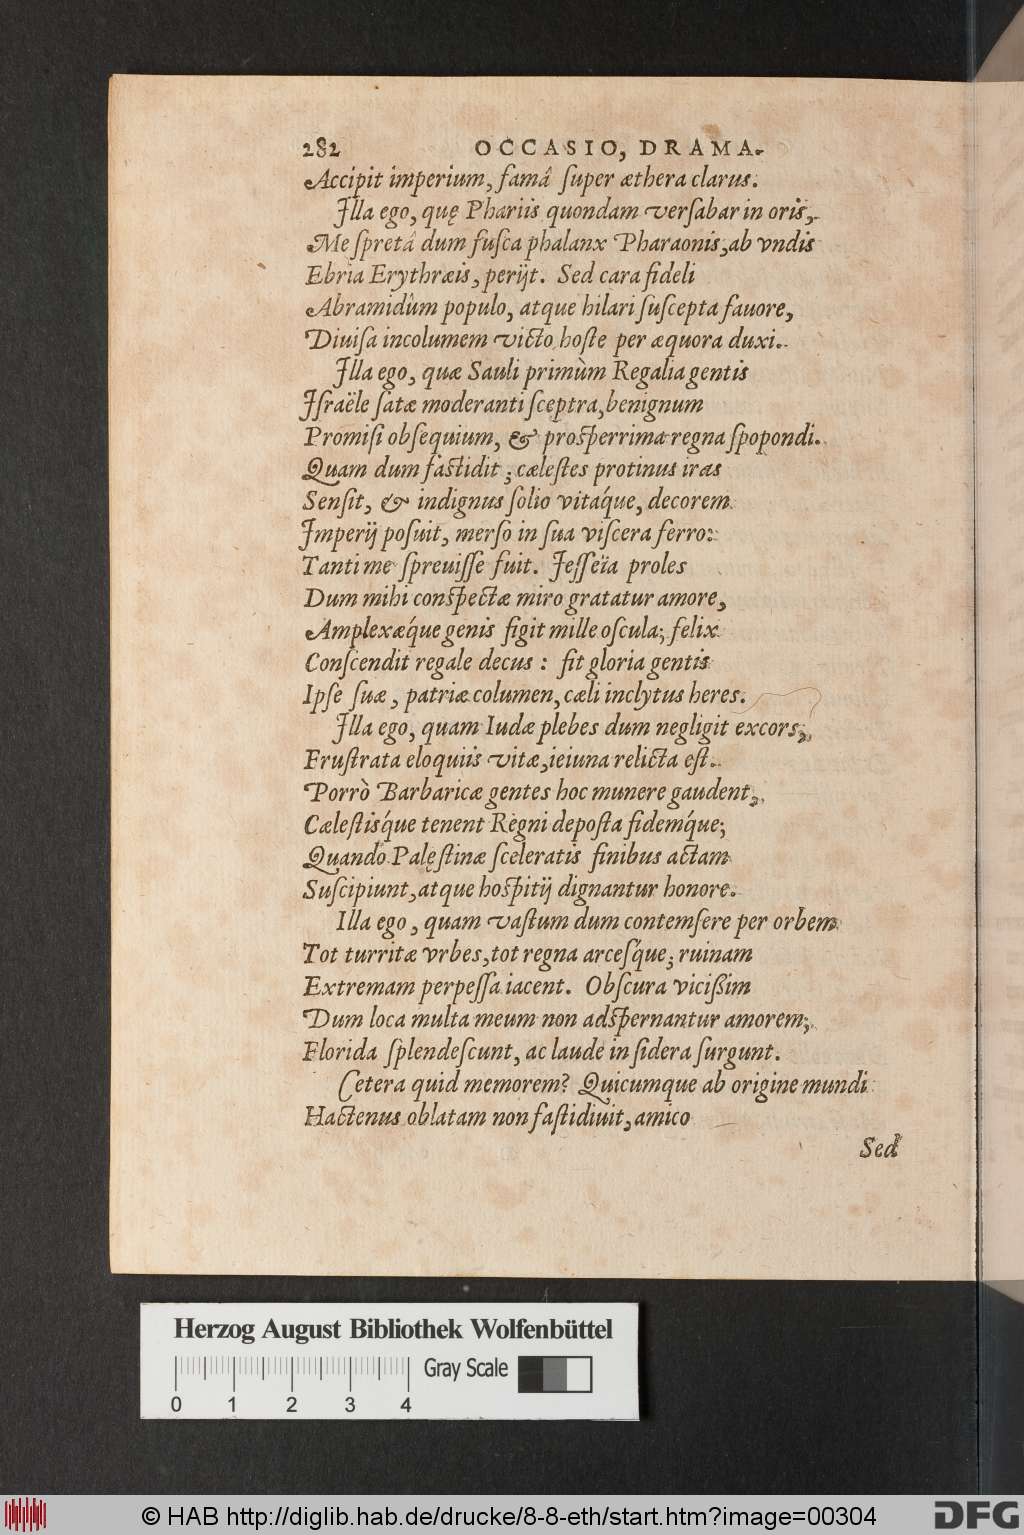 282 OCCASIO, DRAMA.
Accipit imperium, famâ ſuper æthera clarus.
Illa ego, quę Phariis quondam verſabar in oris,
Me ſpretâ dum fuſca phalanx Pharaonis, ab vndis
Ebria Erythræis, perijt. Sed cara fideli
Abramidûm populo, atque hilari ſuſcepta fauore,
Diuiſa incolumem victo hoſte per æquora duxi.
Illa ego, quæ Sauli primùm Regalia gentis
Iſraële ſatæ moderanti ſceptra, benignum
Promiſi obſequium, & proſperrima regna ſpopondi.
Quam dum faſtidit; cæleſtes protinus iras
Senſit, & indignus ſolio vitáque, decorem
Imperij poſuit, merſo in ſua viſcera ferro:
Tanti me ſpreuiſſe fuit. Jeſſeïa proles
Dum mihi conſpectæ miro gratatur amore,
Amplexǽque genis figit mille oſcula; felix
Conſcendit regale decus: fit gloria gentis
Ipſe ſuæ, patriæ columen, cæli inclytus heres.
Illa ego, quam Iudæ plebes dum negligit excors,
Fruſtrata eloquiis vitæ, ieiuna relicta eſt.
Porrò Barbaricæ gentes hoc munere gaudent,
Cæleſtiśque tenent Regni depoſta fideḿque;
Quando Palęſtinæ ſceleratis finibus actam
Suſcipiunt, atque hoſpitij dignantur honore.
Illa ego, quam vaſtum dum contemſere per orbem
Tot turritæ vrbes, tot regna arceśque; ruinam
Extremam perpeſſa iacent. Obſcura vicißim
Dum loca multa meum non adſpernantur amorem;
Florida ſplendeſcunt, ac laude in ſidera ſurgunt.
Cetera quid memorem? Quicumque ab origine mundi
Hactenus oblatam non faſtidiuit, amico
Sed
Herzog August Bibliothek Wolfenbüttel
Gray Scale
0 1 2 3 4
© HAB http://diglib.hab.de/drucke/8-8-eth/start.htm?image=00304
DFG